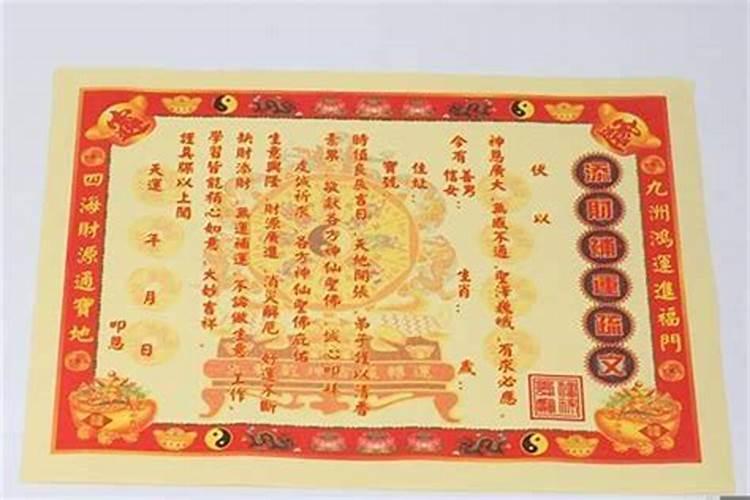 九洲鴻運進福門
添財補運疏文
伏以
神恩廣大 無感不通 聖澤巍峨 有求必應
今有 善男 信女: 生肖: 歲:
住址:
寶號:
時值良辰吉日 天地開張 弟子謹以清香
素果 敬獻各方神仙聖佛 誠心叩拜
虔誠祈求 各方神仙聖佛庇佑
生意興隆 財源廣進 消災解厄 好運不斷
缺財添財 無運補運 不論做生意 工作、
學習皆能稱心如意 大妙吉祥.
謹具疏以上聞
天運 年 月 日 叩恩
四海財源通寶地